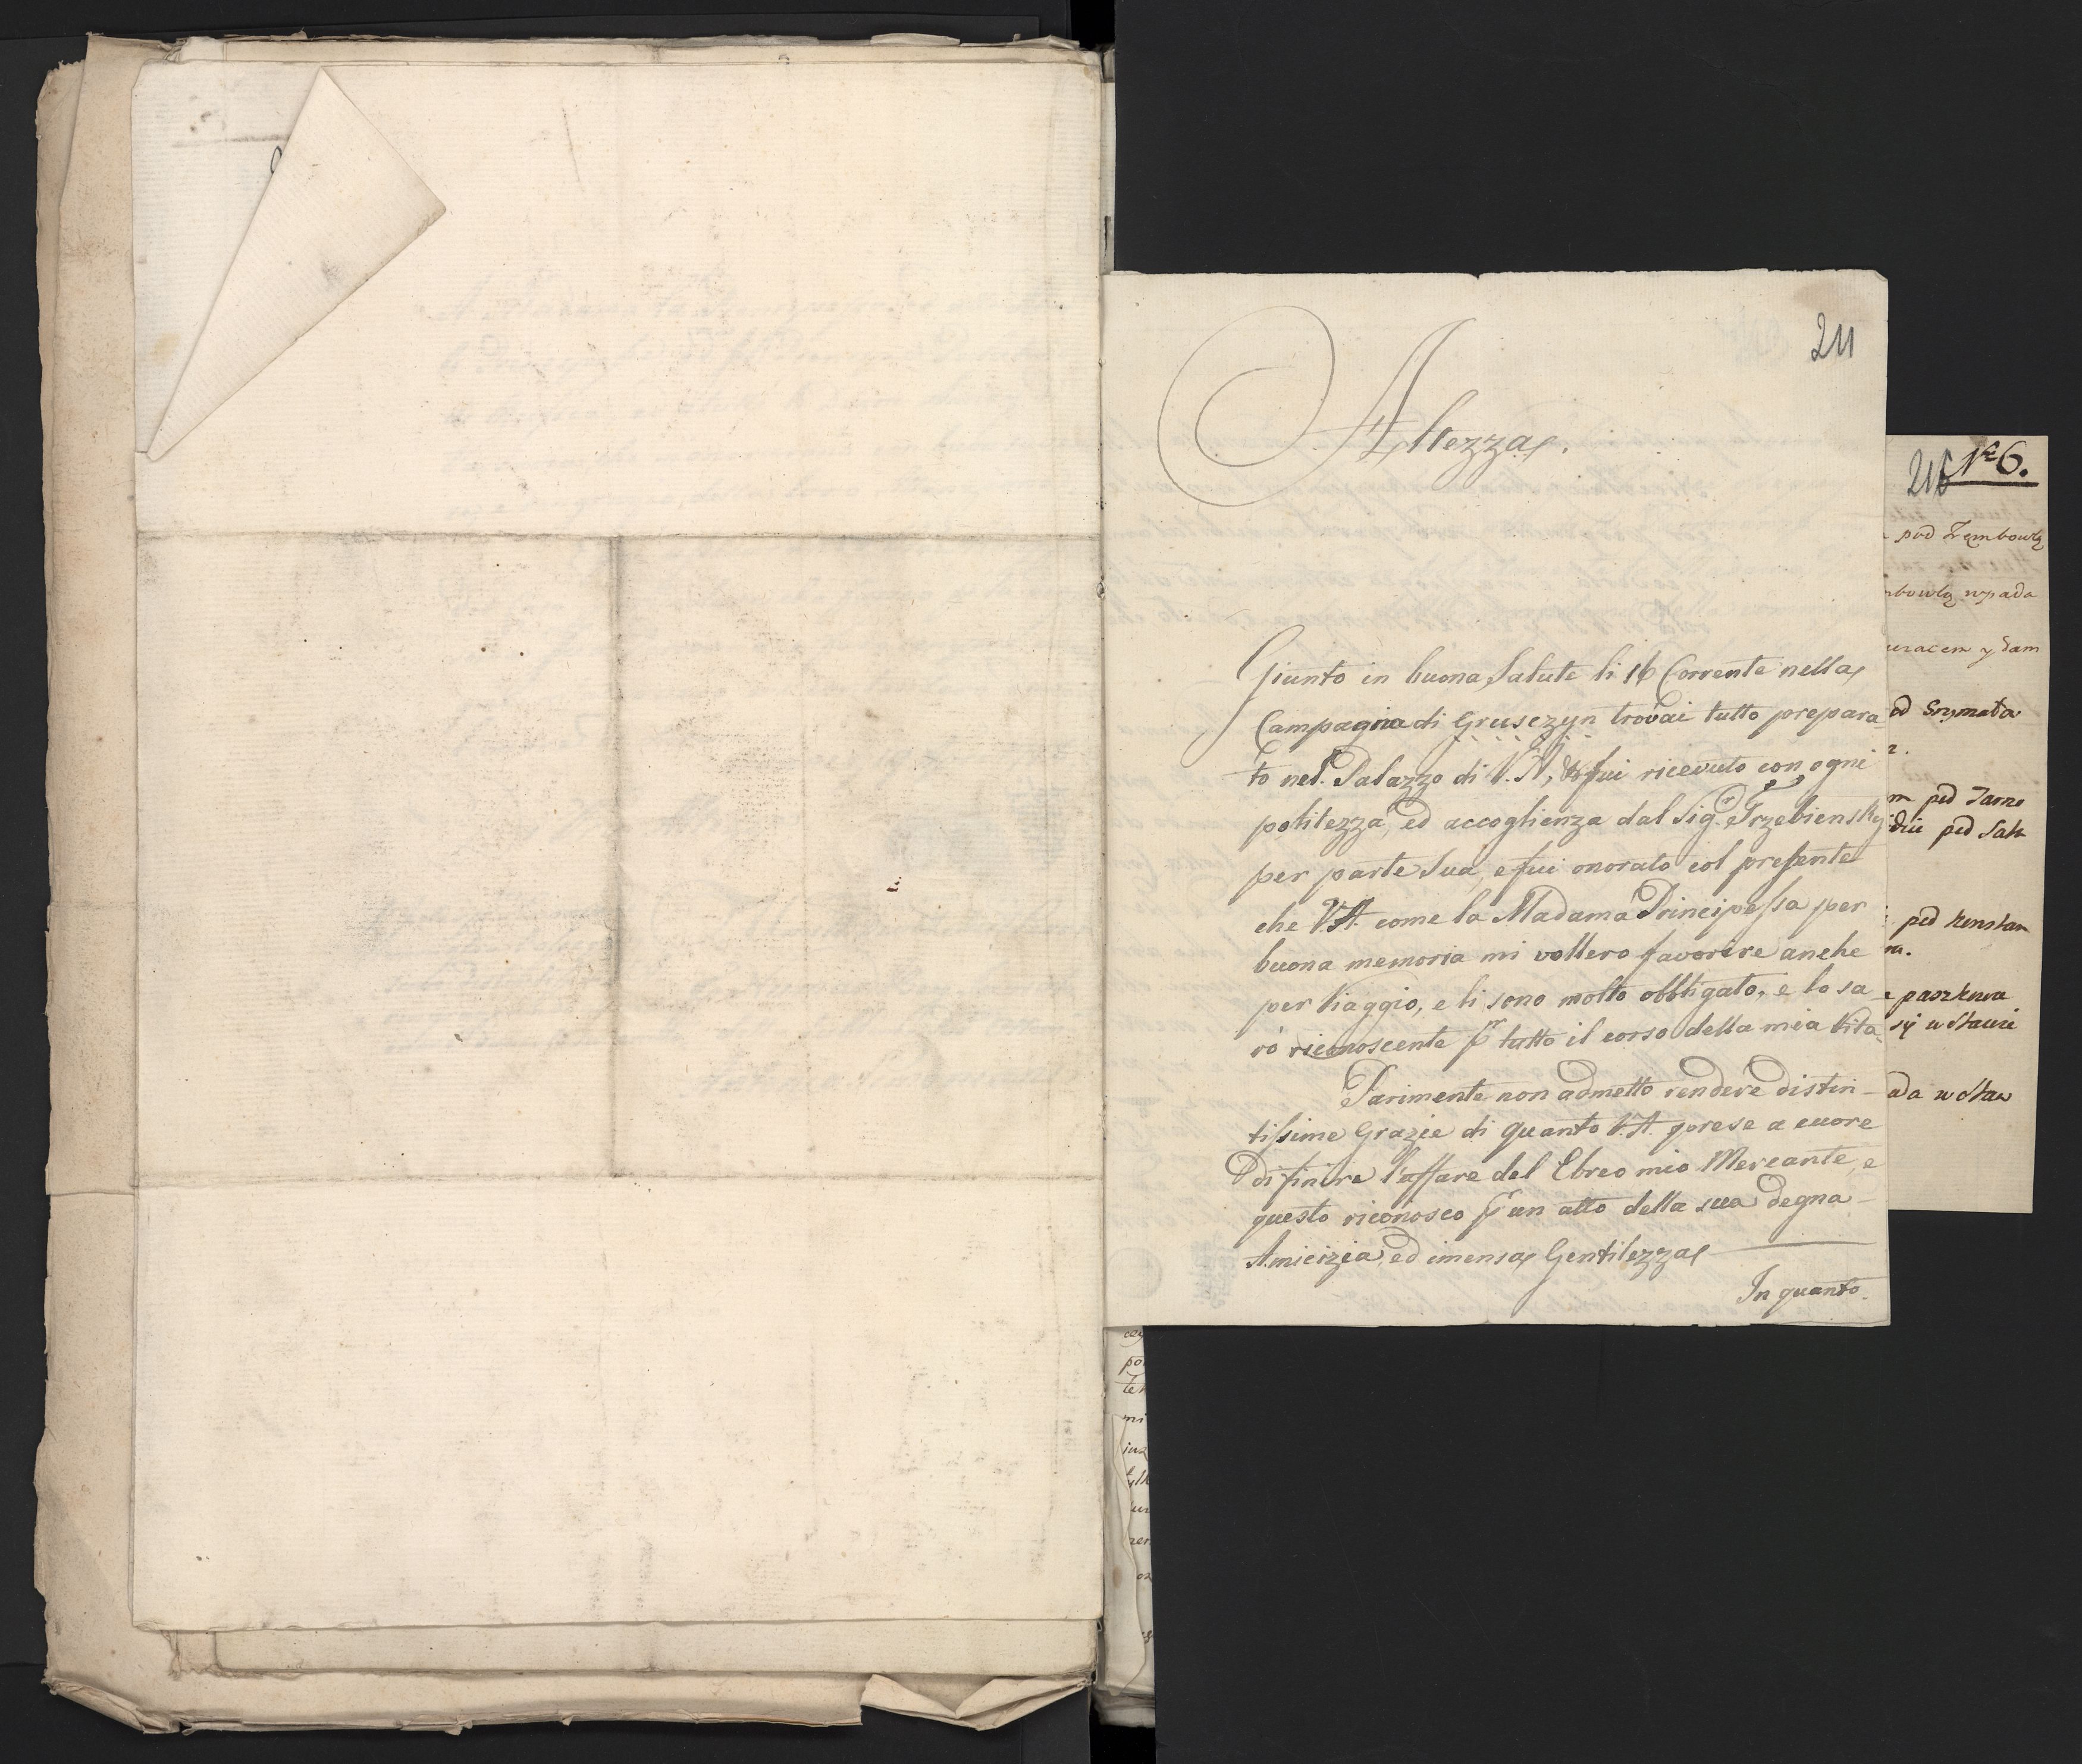 211
Altezza.
Giunto in buona Salute li 16 Corrente nella
Campagna di Grusczyn trovai tutto prepara
to nel Palazzo di V. A, e fui ricevuto con ogni
politezza, ed accoglienza dal Sig.r Trzebiensky
per parte Sua, e fui onorato col presente
che V.A. come la Madama Principessa per
buona memoria mi vollero favorire anche
per Viaggio, e li sono molto obbligato, e lo sa
rò riconoscente p tutto il corso della mia Vita
Parimente non admetto rendere distin-
tissime Grazie di quanto V.A. prese a cuore
di finire l'affare del Ebreo mio Mercante, e
questo riconosco p un atto della sua degna
Amicizia, ed imensa Gentilezza
In quanto.
No 6.
pod Trembowlą
mbowlą wpada
uracem y Sam
od Grzymała
pod Tarno
pod Sała
pod konstan
paszkowa
sij w Stawie
ada w Staw